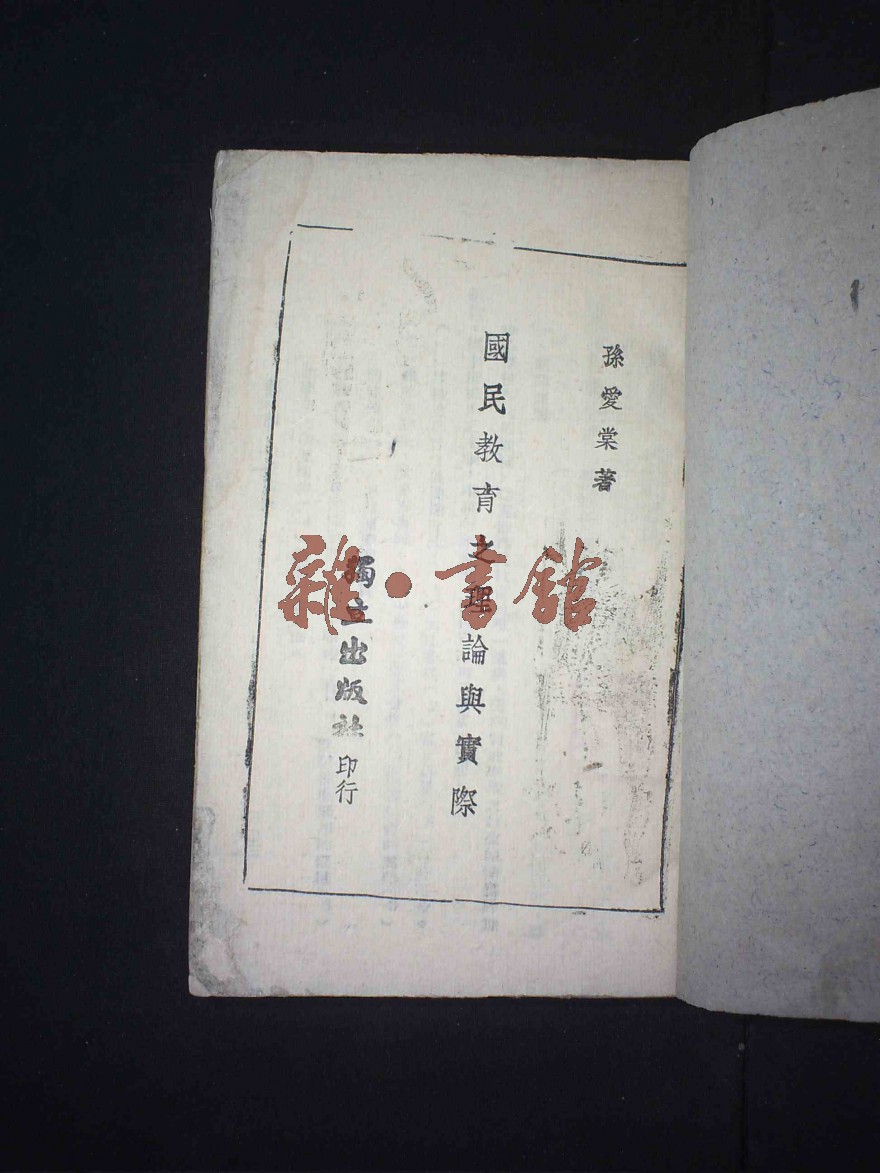 孫愛棠著
國民教育之理論與實際
獨立出版社印行
雜·書館